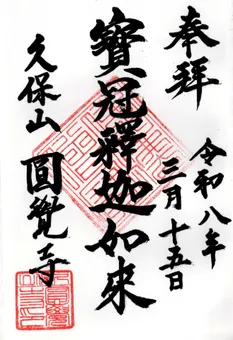 奉拜
令和八年
三月十五日
寶冠釋迦如來
久保山
圓覺寺